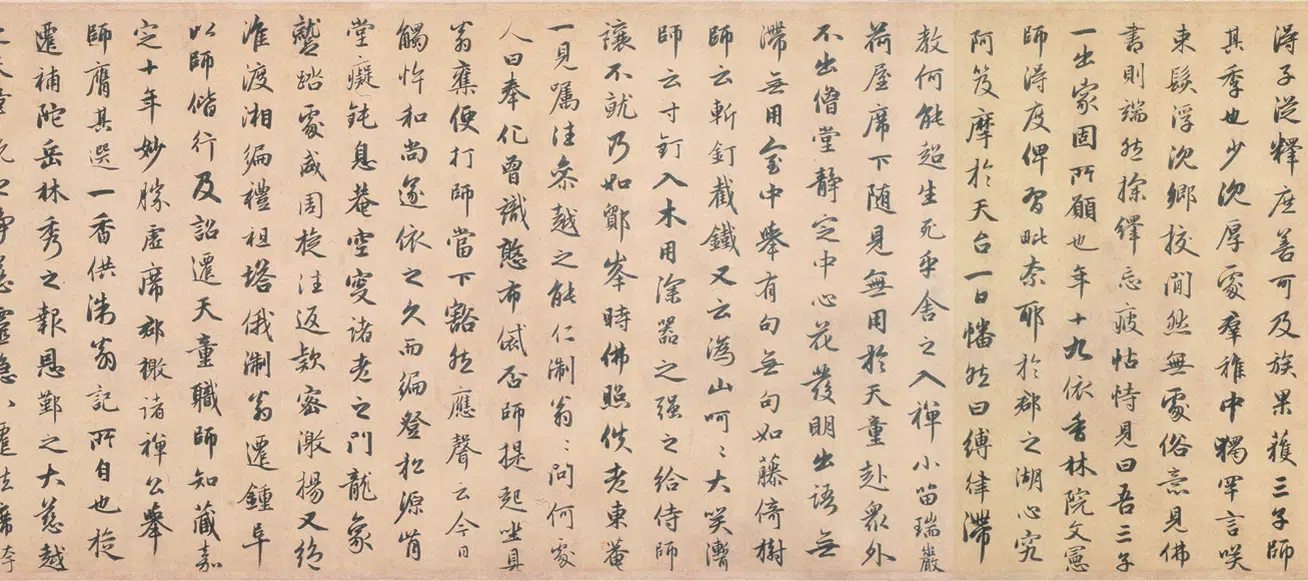 得子從釋庶善可及族果獲三子師
其季也少沈厚處羣稚中獨罕言咲
束髮浮沈鄉挍閒然無處俗意見佛
書則端然探繹忘疲怙恃見曰吾三子
一出家固所願也年十九依香林院文憲
師得度俾習毗奈耶於郡之湖心究
阿笈摩於天台一日幡然曰縛律滯
教何能超生死乎舍之入禪小笛瑞巖
荷屋席下随見無用於天童赴衆外
不出僧堂静定中心花發明出語無
滯無用室中舉有句無句如藤倚樹
師云斬釘截鐵又云溈山呵〻大咲濟
師云寸釘入木用深器之强之給侍師
讓不就乃如鄮峯時佛照佚老東菴
一見囑往叅越之能仁淛翁〻問何處
人曰奉化曾識憨布袋否師提起坐具
翁舊便打師當下豁然應聲云今日
觸忤和尚遂依之久而徧登松源肯
堂癡鈍息菴空叟諸老之門龍象
蹴踏處咸周旋往返欵密激揚又絶
淮渡湘徧禮祖塔俄淛翁遷鍾阜
以師偕行及詔遷天童職師知藏嘉
定十年妙勝虚席郡檄諸禪公舉
師膺其選一香供淛翁記所自也旋
遷補陀岳林秀之報恩鄞之大慈越